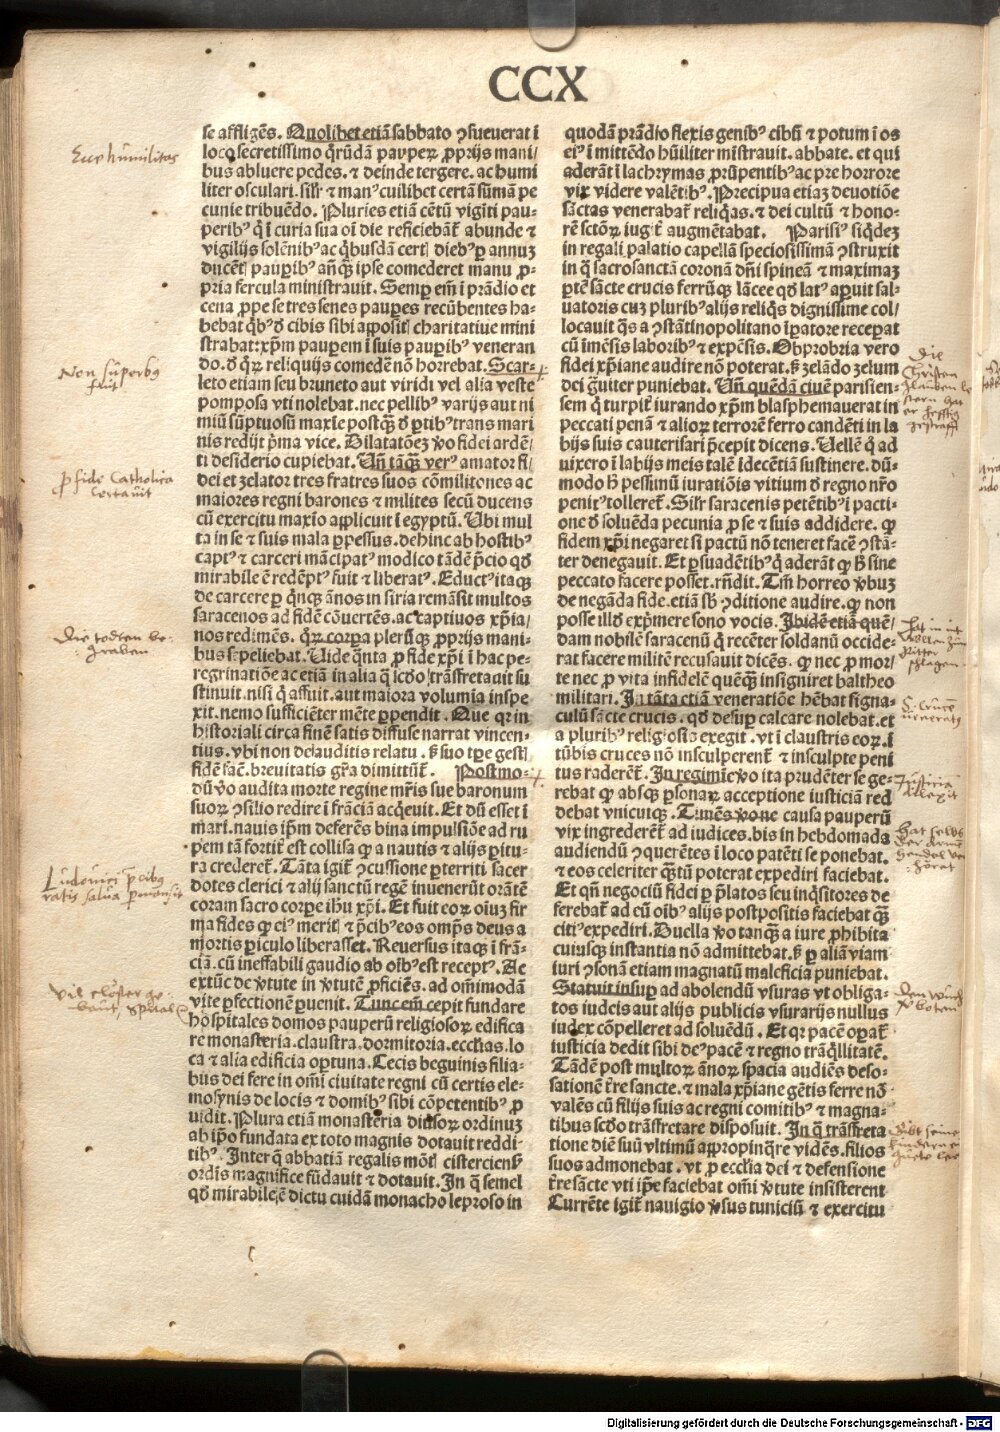 CCX
se affligēs. Quolibet etiā sabbato ꝯsueuerat ī
loco secretissimo q̄rūdā pauperꝫ ꝓprijs mani/
bus abluere pedes. ⁊ deinde tergere. ac humi
liter osculari. silr̄ ⁊ manꝰ cuilibet certā sūmā pe
cunie tribuēdo. Pluries etiā cētū viginti pau⸗
peribꝰ q̄ ī curia sua oī die reficiebāt̄ abunde ⁊
vigilijs solēnibꝰ ac q̄busdā cert diebꝰ ꝑ annuꝫ
ducēt pauꝑibꝰ añq̄ꝫ ipse comederet manu ꝓ⸗
pria fercula ministrauit. Semꝑ em̄ ī prādio et
cena ꝓpe se tres senes pauꝑes recūbentes ha⸗
bebat q̄bꝰ đ cibis sibi apposit charitatiue mini
strabat: xp̄m pauꝑem ī suis pauꝑibꝰ veneran
do. đ q̄rꝫ reliquijs comedē nō horrebat. Scar⸗
leto etiam seu bruneto aut viridi vel alia veste
pomposa vti nolebat. nec pellibꝰ varijs aut ni
miū sūptuosū maxīe postq̄ꝫ đ ꝑtibꝰ trans mari
nis redijt p̄ma vice. Dilatatōeꝫ v̄o fidei ardē/
ti desiderio cupiebat. Vn̄ tāq̄ꝫ verꝰ amator fi/
dei et zelator tres fratres suos cōmilitones ac
maiores regni barones ⁊ milites secū ducens
cū exercitu maxīo applicuit ī egyptū. Vbi mul
ta in se ⁊ suis mala ꝑpessus. dehinc ab hostibꝰ
captꝰ ⁊ carceri mācipatꝰ modico tādē p̄cio qđ
mirabile ē redēptꝰ fuit ⁊ liberatꝰ. Eductꝰ itaqꝫ
de carcere ꝑ q̄nqꝫ ānos in siria remāsit multos
saracenos ad fidē cōuertēs. ac captiuos xp̄ia/
nos redimēs. q̄rꝫ corpa plerūqꝫ ꝓprijs mani⸗
bus sepeliebat. Vide q̄nta ꝓ fide xp̄i ī hac pe⸗
regrinatiōe ac etiā in alia q̄ scđo trāsfretauit su
stinuit. nisi q̄ affuit. aut maiora volumia inspe
xit. nemo sufficiēter mēte ꝑpendit. Que qr in
historiali circa finē satis diffuse narrat vincen⸗
tius. vbi non de auditis relatu. sꝫ suo tꝑe gest
fidē facī. breuitatis gr̄a dimittūt̄. Postmo⸗
dū v̄o audita morte regine mr̄is sue baronum
suorꝫ ꝯsilio redire ī frāciā acq̄euit. Et dū esset ī
mari. nauis ip̄m deferēs bina impulsiōe ad ru
pem tā fortit̄ est collisa ꝙ a nautis ⁊ alijs ꝑitu⸗
ra crederet̄. Tāta igit̄ ꝯcussione ꝑterriti sacer
dotes clerici ⁊ alij sanctū regē inuenerūt orātē
coram sacro corꝑe ih̄u xp̄i. Et fuit eorꝫ oīuꝫ fir
ma fides ꝙ eiꝰ merit ⁊ p̄cibꝰ eos omp̄s deus a
mortis ꝑiculo liberasset. Reuersus itaqꝫ ī frā⸗
ciā. cū ineffabili gaudio ab oībꝰ est receptꝰ. Ac
extūc de v̄tute in v̄tutē ꝓficiēs. ad oīmodā
vite ꝑfectionē ꝑuenit. Tunc em̄ cepit fundare
hospitales domos pauperū religiosorꝫ edifica
re monasteria. claustra. dormitoria. ecclīas. lo
ca ⁊ alia edificia oꝑtuna. Cecis beguinis filia⸗
bus dei fere in om̄i ciuitate regni cū certis ele⸗
mosynis de locis ⁊ domibꝰ sibi cōpetentibꝰ ꝓ
uidit. Plura etiā monasteria diūsorꝫ ordinuꝫ
ab ip̄o fundata ex toto magnis dotauit reddi⸗
tibꝰ. Inter q̄ abbatiā regalis mōt cisterciensꝭ
ordīs magnifice fūdauit ⁊ dotauit. In q̄ semel
qđ mirabile ē dictu cuidā monacho leproso in
quodā prādio flexis genibꝰ cibū ⁊ potum ī os
eiꝰ ī mittēdo hūiliter mīstrauit. abbate. et qui
aderāt ī lachrymas ꝓrūpentibꝰ ac pre horrore
vix videre valētibꝰ. Precipua etiaꝫ deuotiōe
sāctas venerabat̄ reliq̄as. ⁊ dei cultū ⁊ hono⸗
rē sctōrꝫ iugit̄ augmētabat. Parisiꝰ siq̄deꝫ
in regali palatio capellā speciosissimā ꝯstruxit
in q̄ sacrosanctā coronā dn̄i spineā ⁊ maximaꝫ
ꝑtē sācte crucis ferrūqꝫ lācee qđ latꝰ aꝑuit sal⸗
uatoris cuꝫ pluribꝰ alijs reliq̄s dignissime col/
locauit q̄s a ꝯstātinopolitano īꝑatore receꝑat
cū īmēsis laboribꝰ ⁊ expēsis. Obprobria vero
fidei xp̄iane audire nō poterat. sꝫ zelādo zelum
dei ḡuiter puniebat. Vn̄ quēdā ciuē parisien⸗
sem q̄ turpit̄ iurando xp̄m blasphemauerat in
peccati penā ⁊ aliorꝫ terrorem ferro candēti in la
bijs suis cauterisari p̄cepit dicens. Vellē q̄ ad
uixero ī labijs meis talē īdecētiā sustinere. dū⸗
modo h̄ pessimū iuratiōis vitium đ regno nr̄o
penitꝰ tolleret̄. Silr̄ saracenis petētibꝰ ī pacti⸗
one đ soluēda pecunia ꝓ se ⁊ suis addidere. ꝙ
fidem xp̄i negaret si pactū nō teneret facē ꝯstā⸗
ter denegauit. Et ꝑsuadētibꝰ q̄ aderāt ꝙ h̄ sine
peccato facere posset. rn̄dit. Tm̄ horreo v̄buꝫ
de negāda fide. etiā sb̄ ꝯditione audire. ꝙ non
posse illđ exp̄mere sono vocis. Ibidē etiā quē/
dam nobilē saracenū q̄ recēter soldanū occide⸗
rat facere militē recusauit dicēs. ꝙ nec ꝓ mor/
te nec ꝓ vita infidelē quēqꝫ insigniret baltheo
militari. In tāta etiā veneratiōe hēbat signa⸗
culū sācte crucis. qđ desuꝑ calcare nolebat. et
a pluribꝰ religiosis exegit. vt ī claustris eorꝫ. ī
tūbis cruces nō insculperent̄ ⁊ insculpte peni
tus raderēt̄. In regimīe v̄o ita prudēter se ge⸗
rebat ꝙ absqꝫ ꝑsonarꝫ acceptione iusticiā red
debat vnicuiqꝫ. Timēs v̄o ne causa pauperū
vix ingrederēt̄ ad iudices. bis in hebdomada
audiendū ꝯquerētes ī loco patēti se ponebat.
⁊ eos celeriter q̄ꝫtū poterat expediri faciebat.
Et qn̄ negociū fidei ꝑ p̄latos seu inq̄sitores de
ferebat̄ ad eū oībꝰ alijs postpositis faciebat q̄ꝫ
citiꝰ expediri. Duella v̄o tanq̄ꝫ a iure ꝓhibita
cuiusqꝫ instantia nō admittebat. sꝫ ꝑ aliā viam
iuri ꝯsonā etiam magnatū maleficia puniebat.
Statuit insuꝑ ad abolendū vsuras vt obliga⸗
tos iudeis aut alijs publicis vsurarijs nullus
iudex cōpelleret ad soluēdū. Et qr pacē oꝑat̄
iusticia dedit sibi deꝰ pacē ⁊ regno trāq̄llitatē.
Tādē post multorꝫ ānorꝫ spacia audiēs deso⸗
sationē tr̄re sancte. ⁊ mala xp̄iane gētis ferre nō
valēs cū filijs suis ac regni comitibꝰ ⁊ magna⸗
tibus scđo trāsfretare disposuit. In q̄ trāsfreta
tione diē suū vltimū appropinq̄re vidēs. filios
suos admonebat. vt ꝓ ecclīa dei ⁊ defensione
tr̄re sācte vti ip̄e faciebat om̄i v̄tute insisterent
Currēte igit̄ nauigio v̄sus tuniciū ⁊ exercitu
humilitas
Non superbꝰ
fuit
ꝓ fide Catholica
Certauit
Die todten be⸗
graben
Justicia
Digitalisierung gefördert durch die Deutsche Forschungsgemeinschaft - DFG